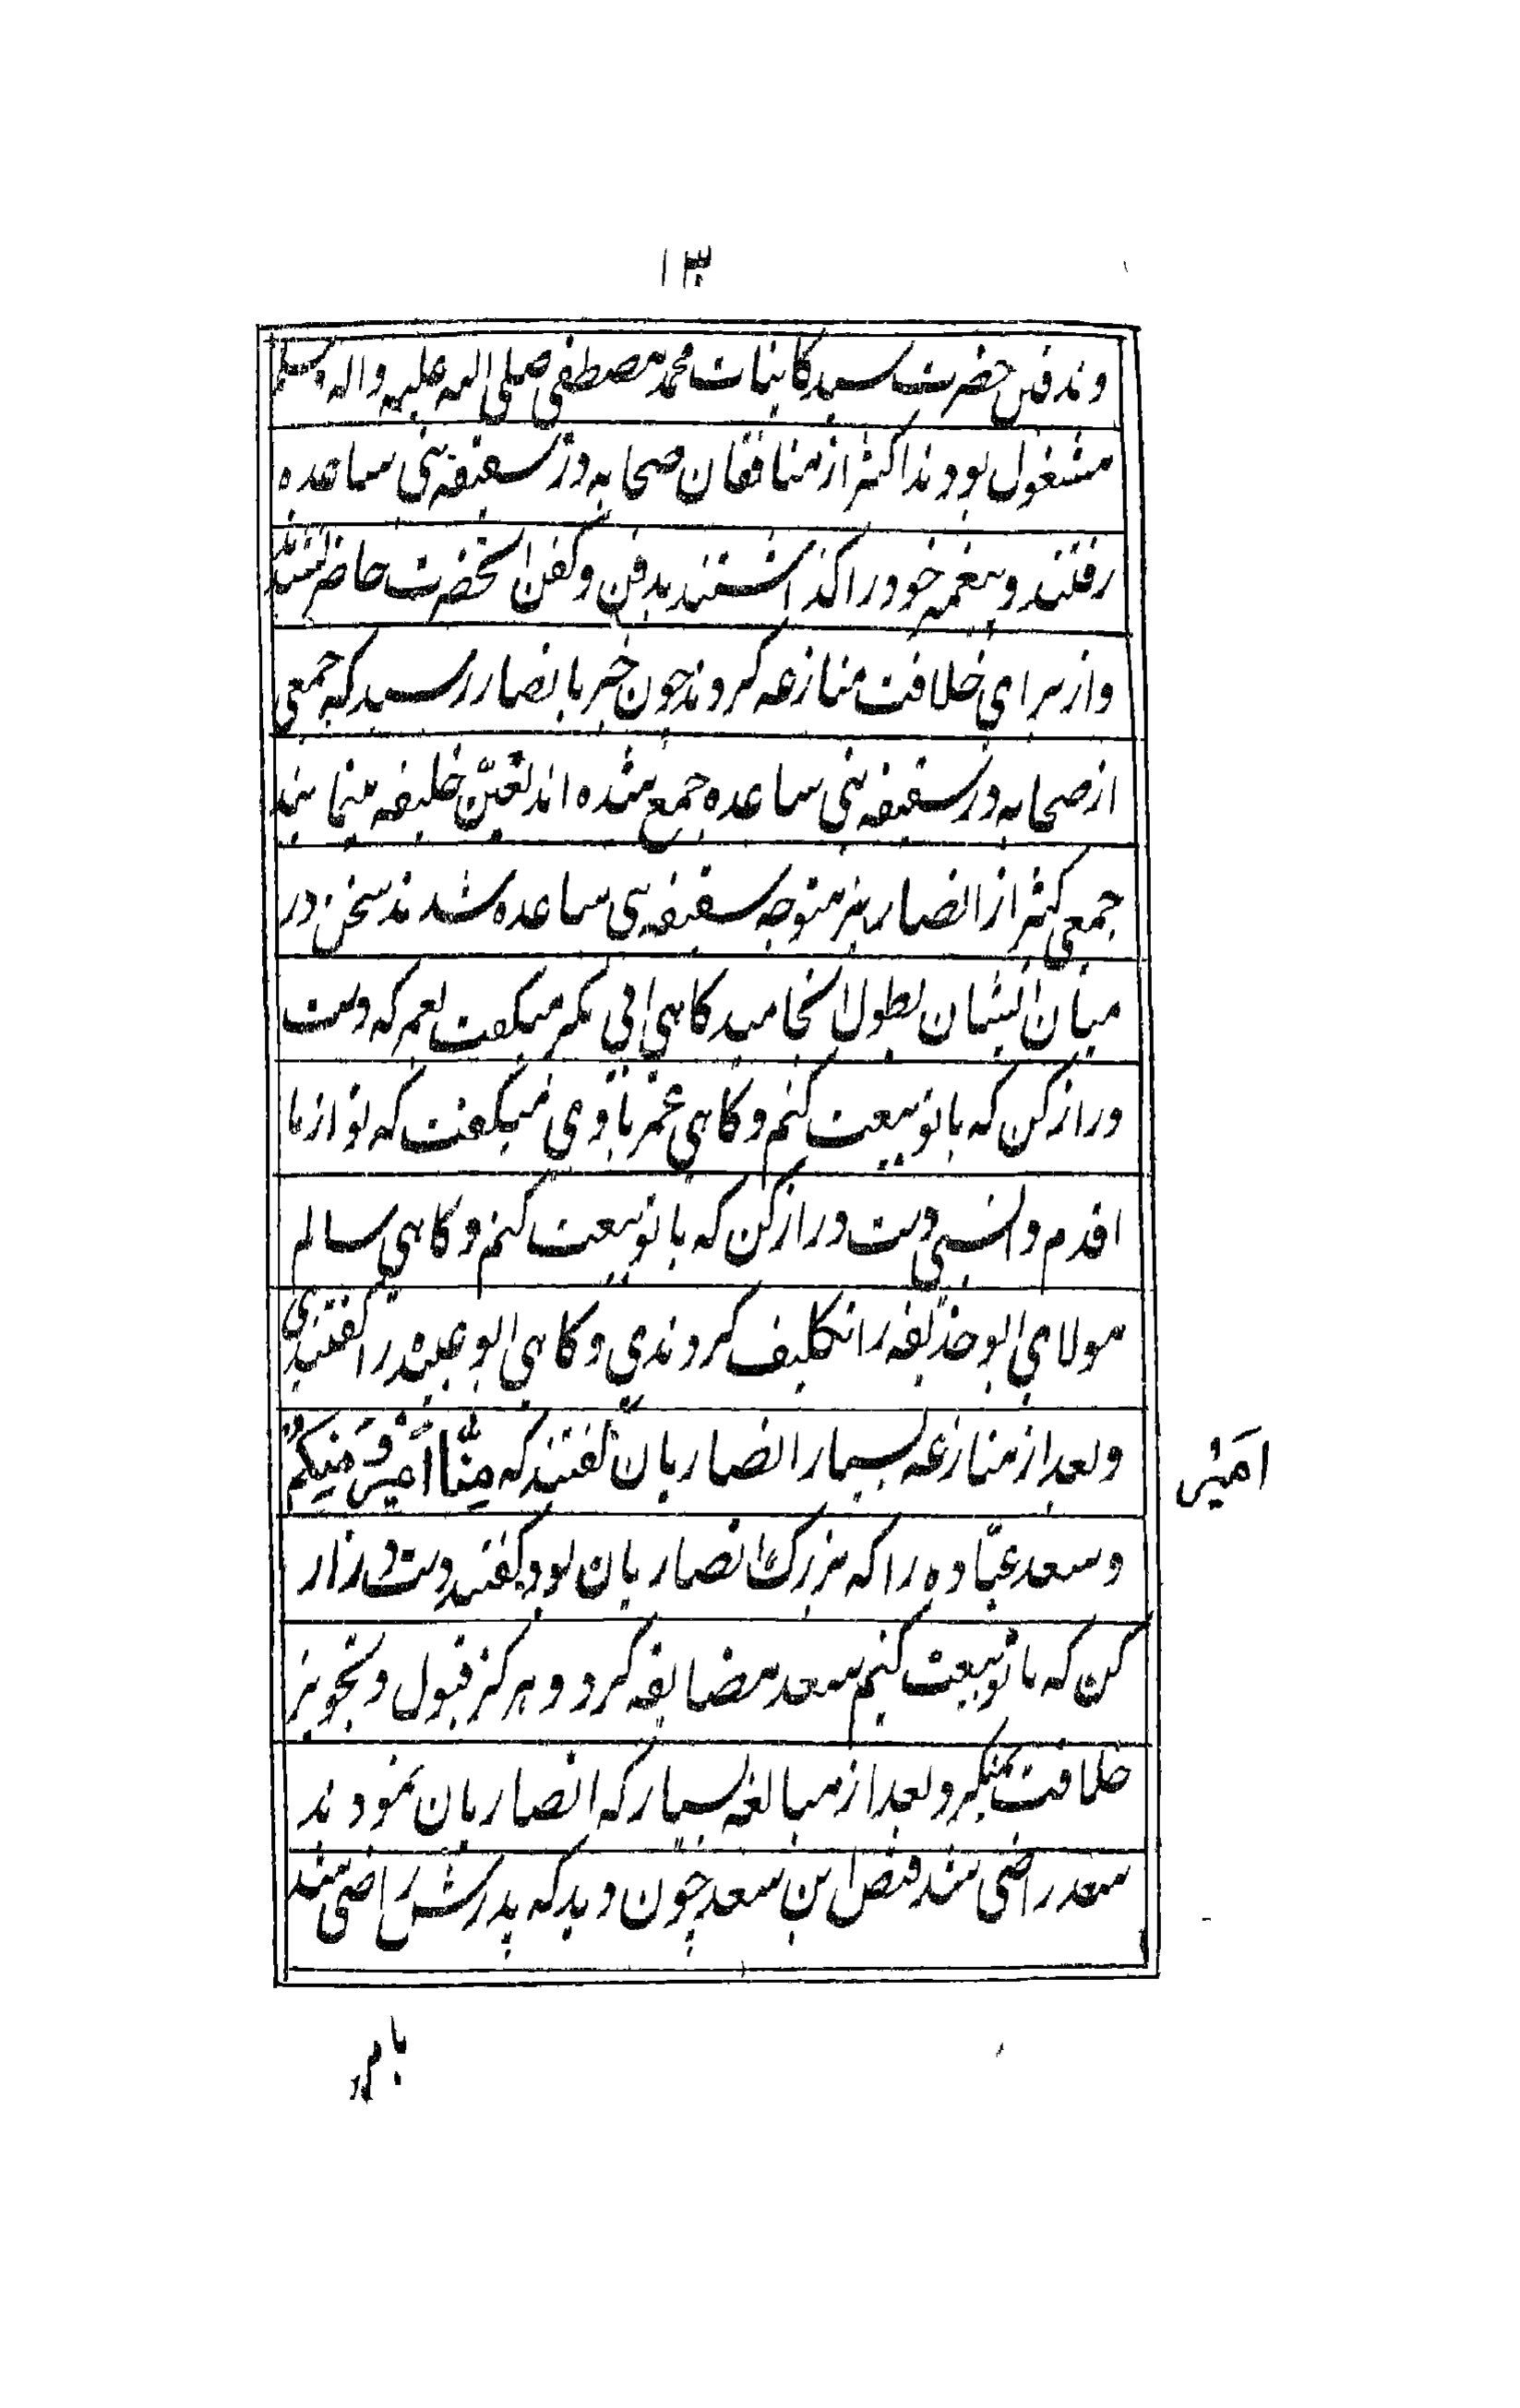 ۱۳
و بدفن حضرت سید کاینات محمد مصطفی صلی الله علیه واله وسلم
مشغول بودند اکثر از منافقان صحابه در سقیفه بنی ساعده
رفتند و پیغمبر خود را گذاشتند بدفن و کفن انحضرت حاضر نشدند
و از برای خلافت منازعه کردند چون خبر بانصار رسید که جمعی
از صحابه در سقیفه بنی ساعده جمع شده اند تعیّن خلیفه مینمایند
جمعی کثیر از انصار نیز متوجه سقیفه بنی ساعده شدند سخن در
میان ایشان بطول انجامید کاهی ابی بکر میکفت بعمر که دست
دراز کن که با تو بیعت کنم و کاهی عمر باوی میکفت که تو از ما
اقدم و انسبی دست دراز کن که با تو بیعت کنم و کاهی سالم
مولای ابو حذیفه را تکلیف کردندی و کاهی ابو عبیده را کفتندی
و بعد از منازعه بسیار انصاریان کفتند که مِنَّا اَمیرٌ وَ مِنیکُمْ
امَیرٌ
و سعد عبّاده را که بزرک انصاریان بود کفتند دست دراز
کن که با تو بیعت کنیم سعد مضایقه کرد و هرکز قبول و تجویز
خلافت نمیکرد و بعد از مبالغه بسیار که انصاریان نمودند
سعد راضی شد قیص ابن سعد چون دید که پدرش راضی شد
با پدر